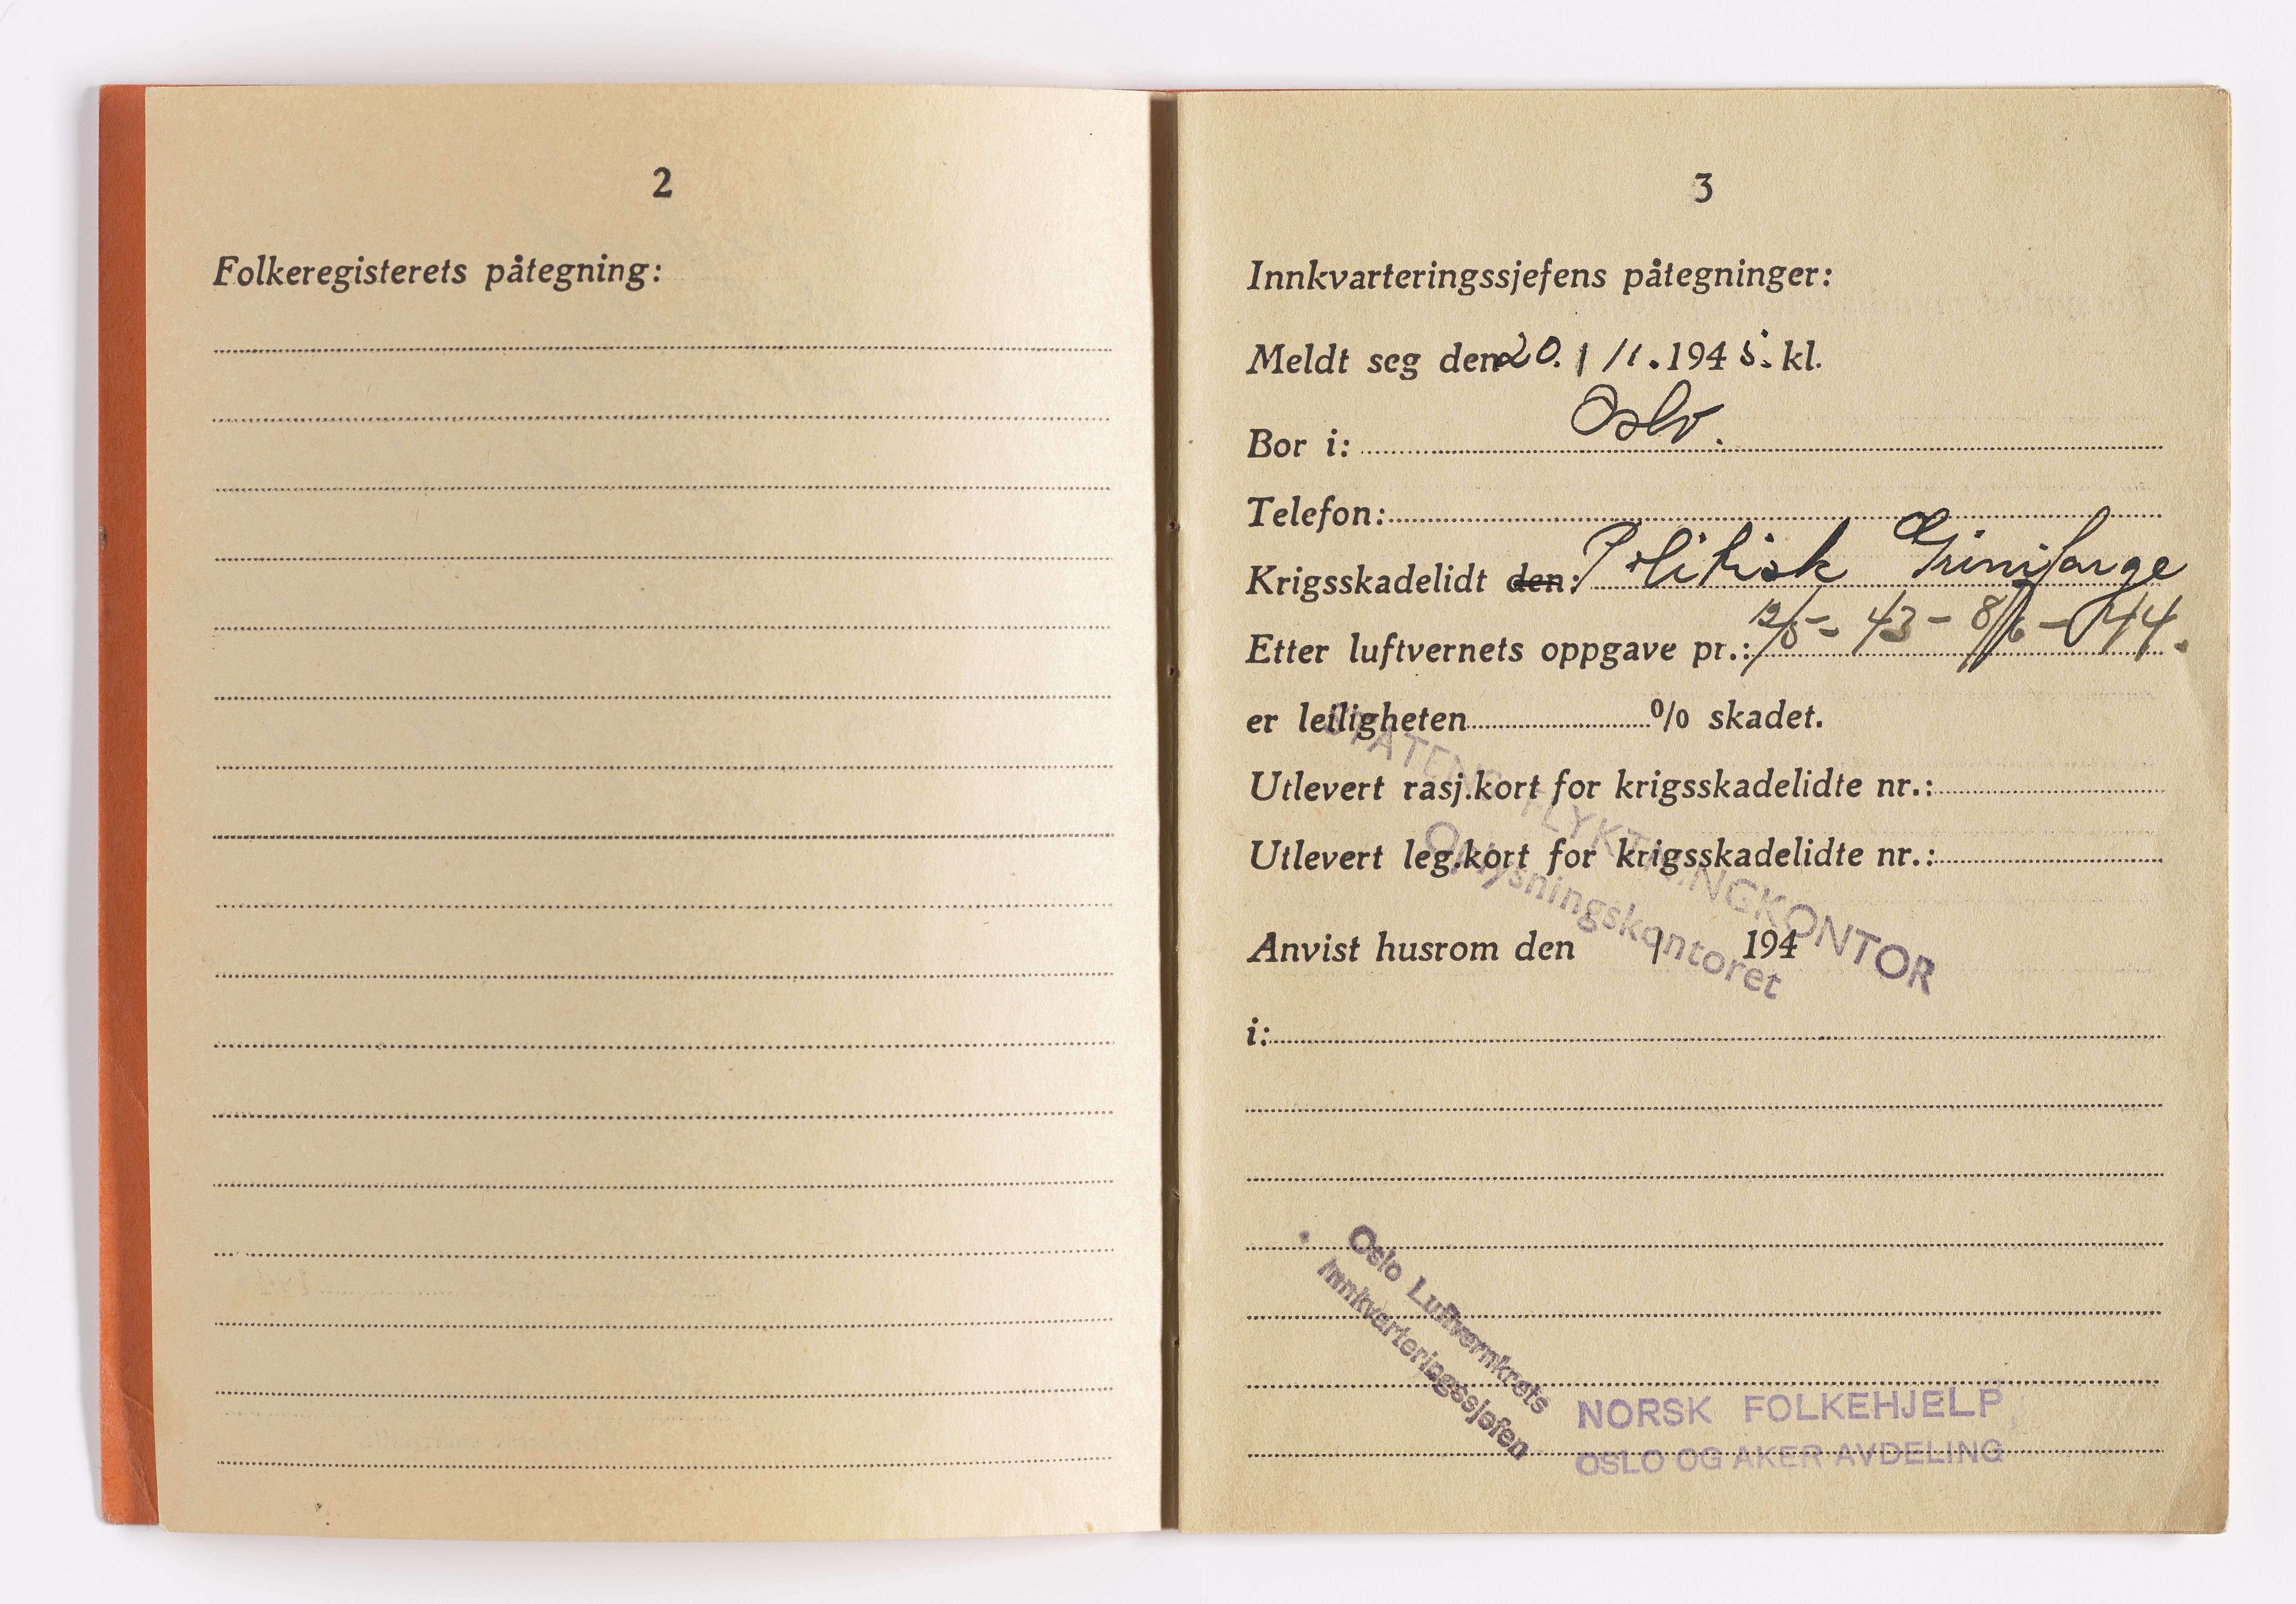 2
Folkeregisterets påtegning:
3
Innkvarteringssjefens påtegninger:
Meldt seg den 20. / 11. 1945. kl.
Bor i: Oslo.
Telefon:
Krigsskadelidt den: Politisk Grinifange
Etter luftvernets oppgave pr.: 12/5- 43 - 8/6 - 44.
er leiligheten % skadet.
Utlevert rasj.kort for krigsskadelidte nr.:
Utlevert leg.kort for krigsskadelidte nr.:
Anvist husrom den / 194
i:
STATENS FLYKTNINGKONTOR
Opplysningskontoret
Oslo Luftvernkrets
Innkvarteringssjefen
NORSK FOLKEHJELP
OSLO OG AKER AVDELING